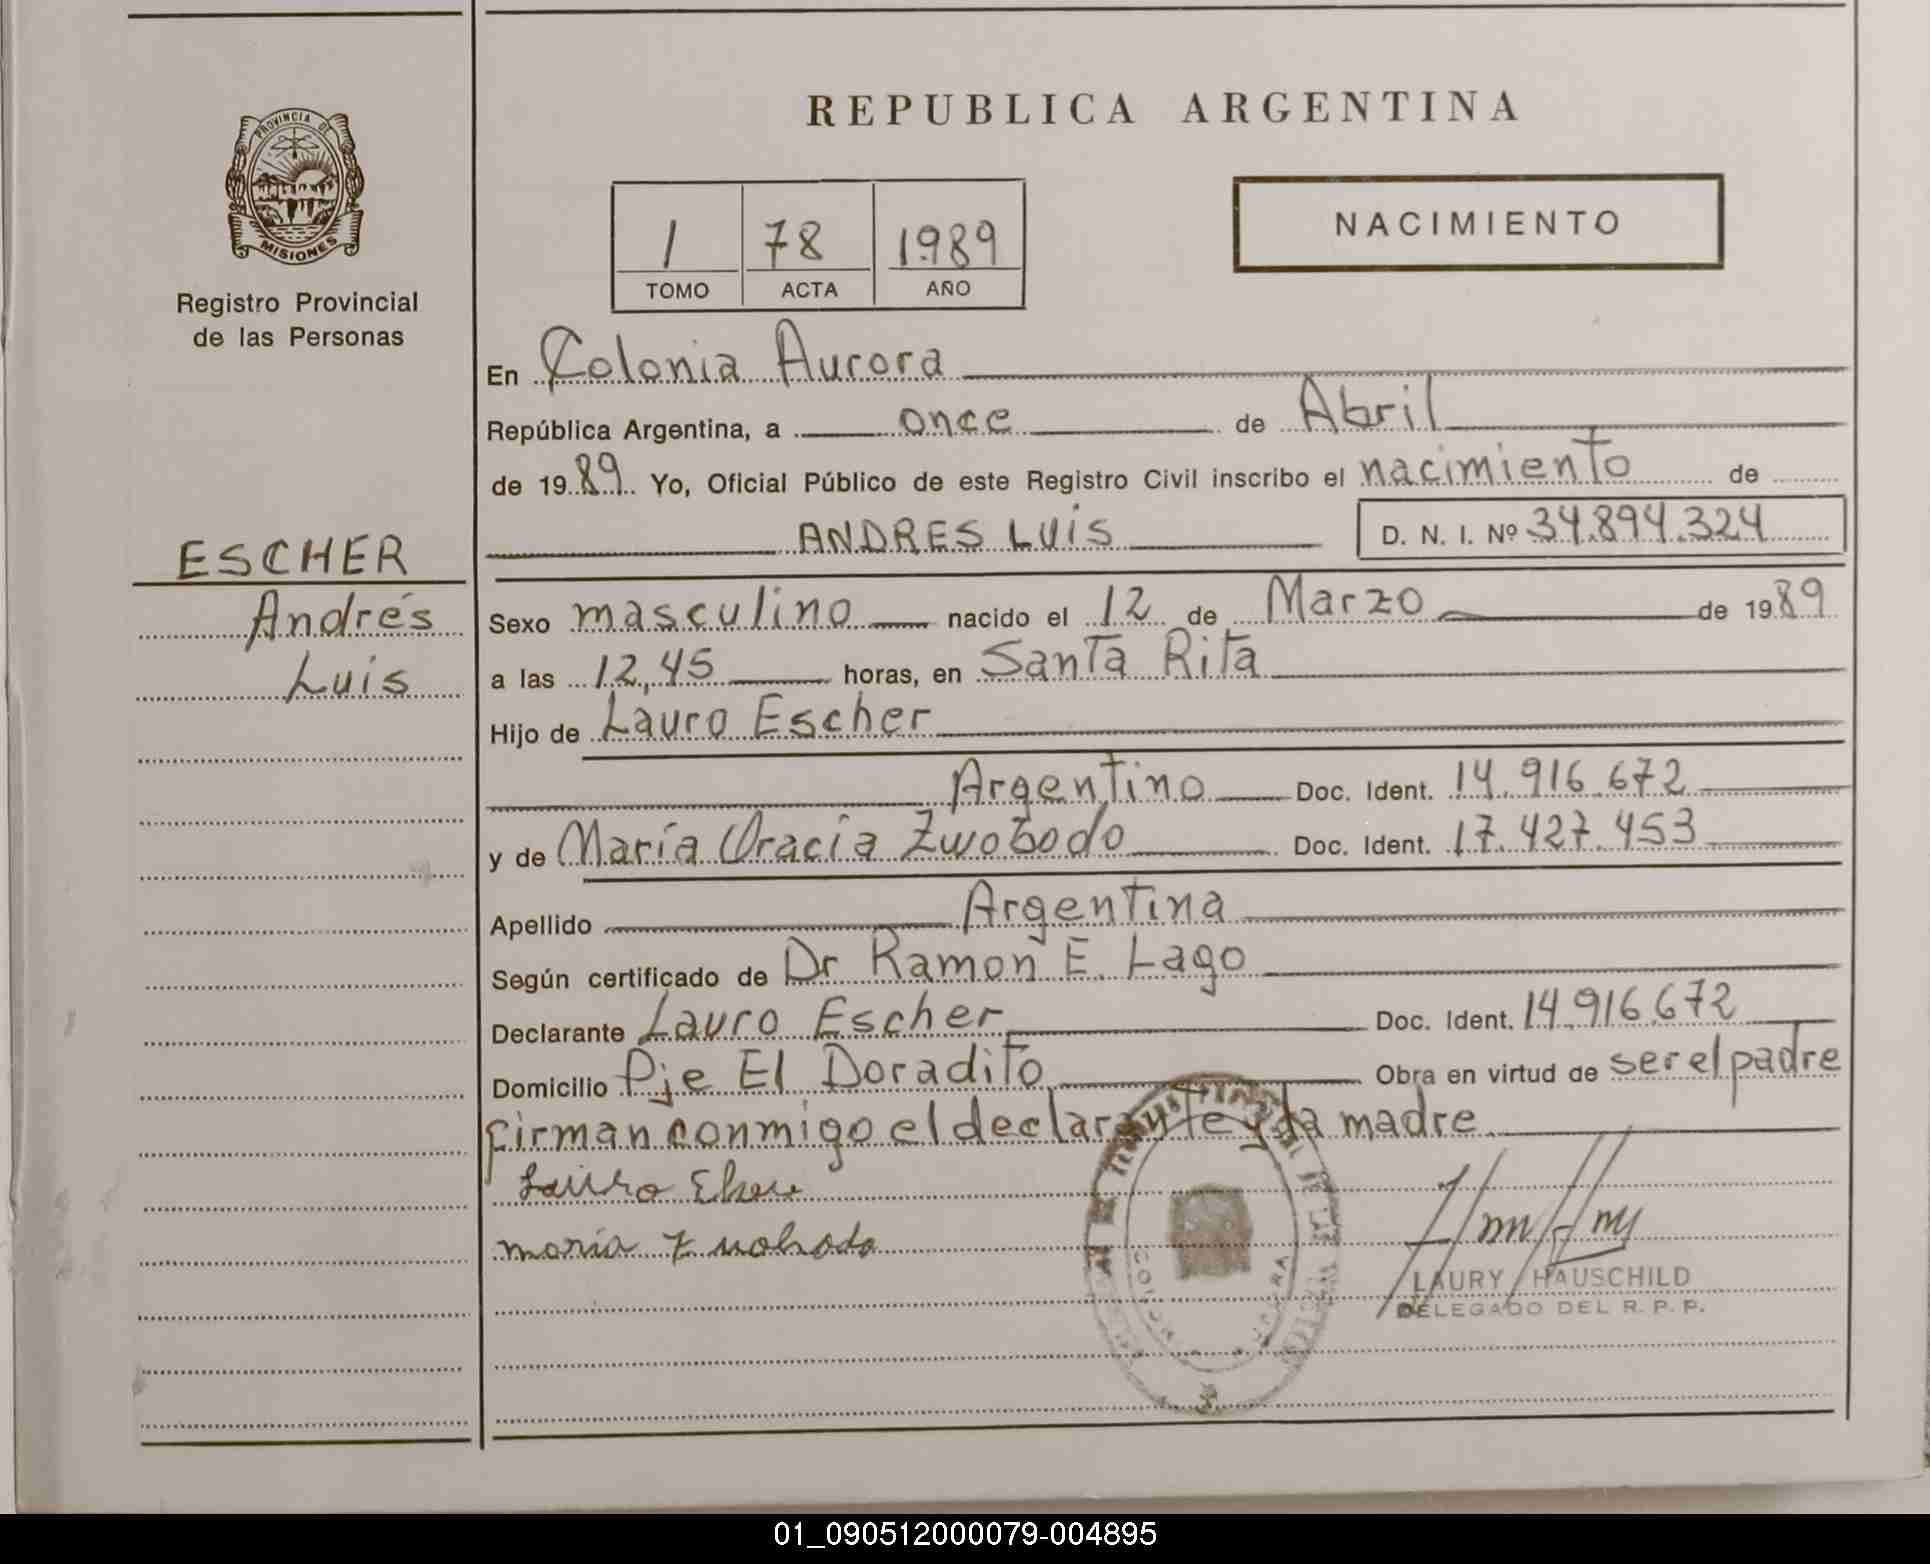 REPUBLICA ARGENTINA
PROVINCIA DE
MISIONES
Registro Provincial
de las Personas
1 78 1989
TOMO ACTA AÑO
NACIMIENTO
En Colonia Aurora
República Argentina, a once de Abril
de 1989 Yo, Oficial Público de este Registro Civil inscribo el nacimiento de
ANDRES LUIS D. N. I. Nº 34.894.324
ESCHER
Andrés
Luis
Sexo masculino nacido el 12 de Marzo de 1989
a las 12,45 horas, en Santa Rita
Hijo de Lauro Escher
Argentino Doc. Ident. 14.916.672
y de María Oracia Zwobodo Doc. Ident. 17.427.453
Apellido Argentina
Según certificado de Dr Ramon E. Lago
Declarante Lauro Escher Doc. Ident. 14.916.672
Domicilio Pje El Doradito Obra en virtud de ser el padre
firman conmigo el declarante y la madre
Lauro
maria
LAURY HAUSCHILD
DELEGADO DEL R. P. P.
01_090512000079-004895